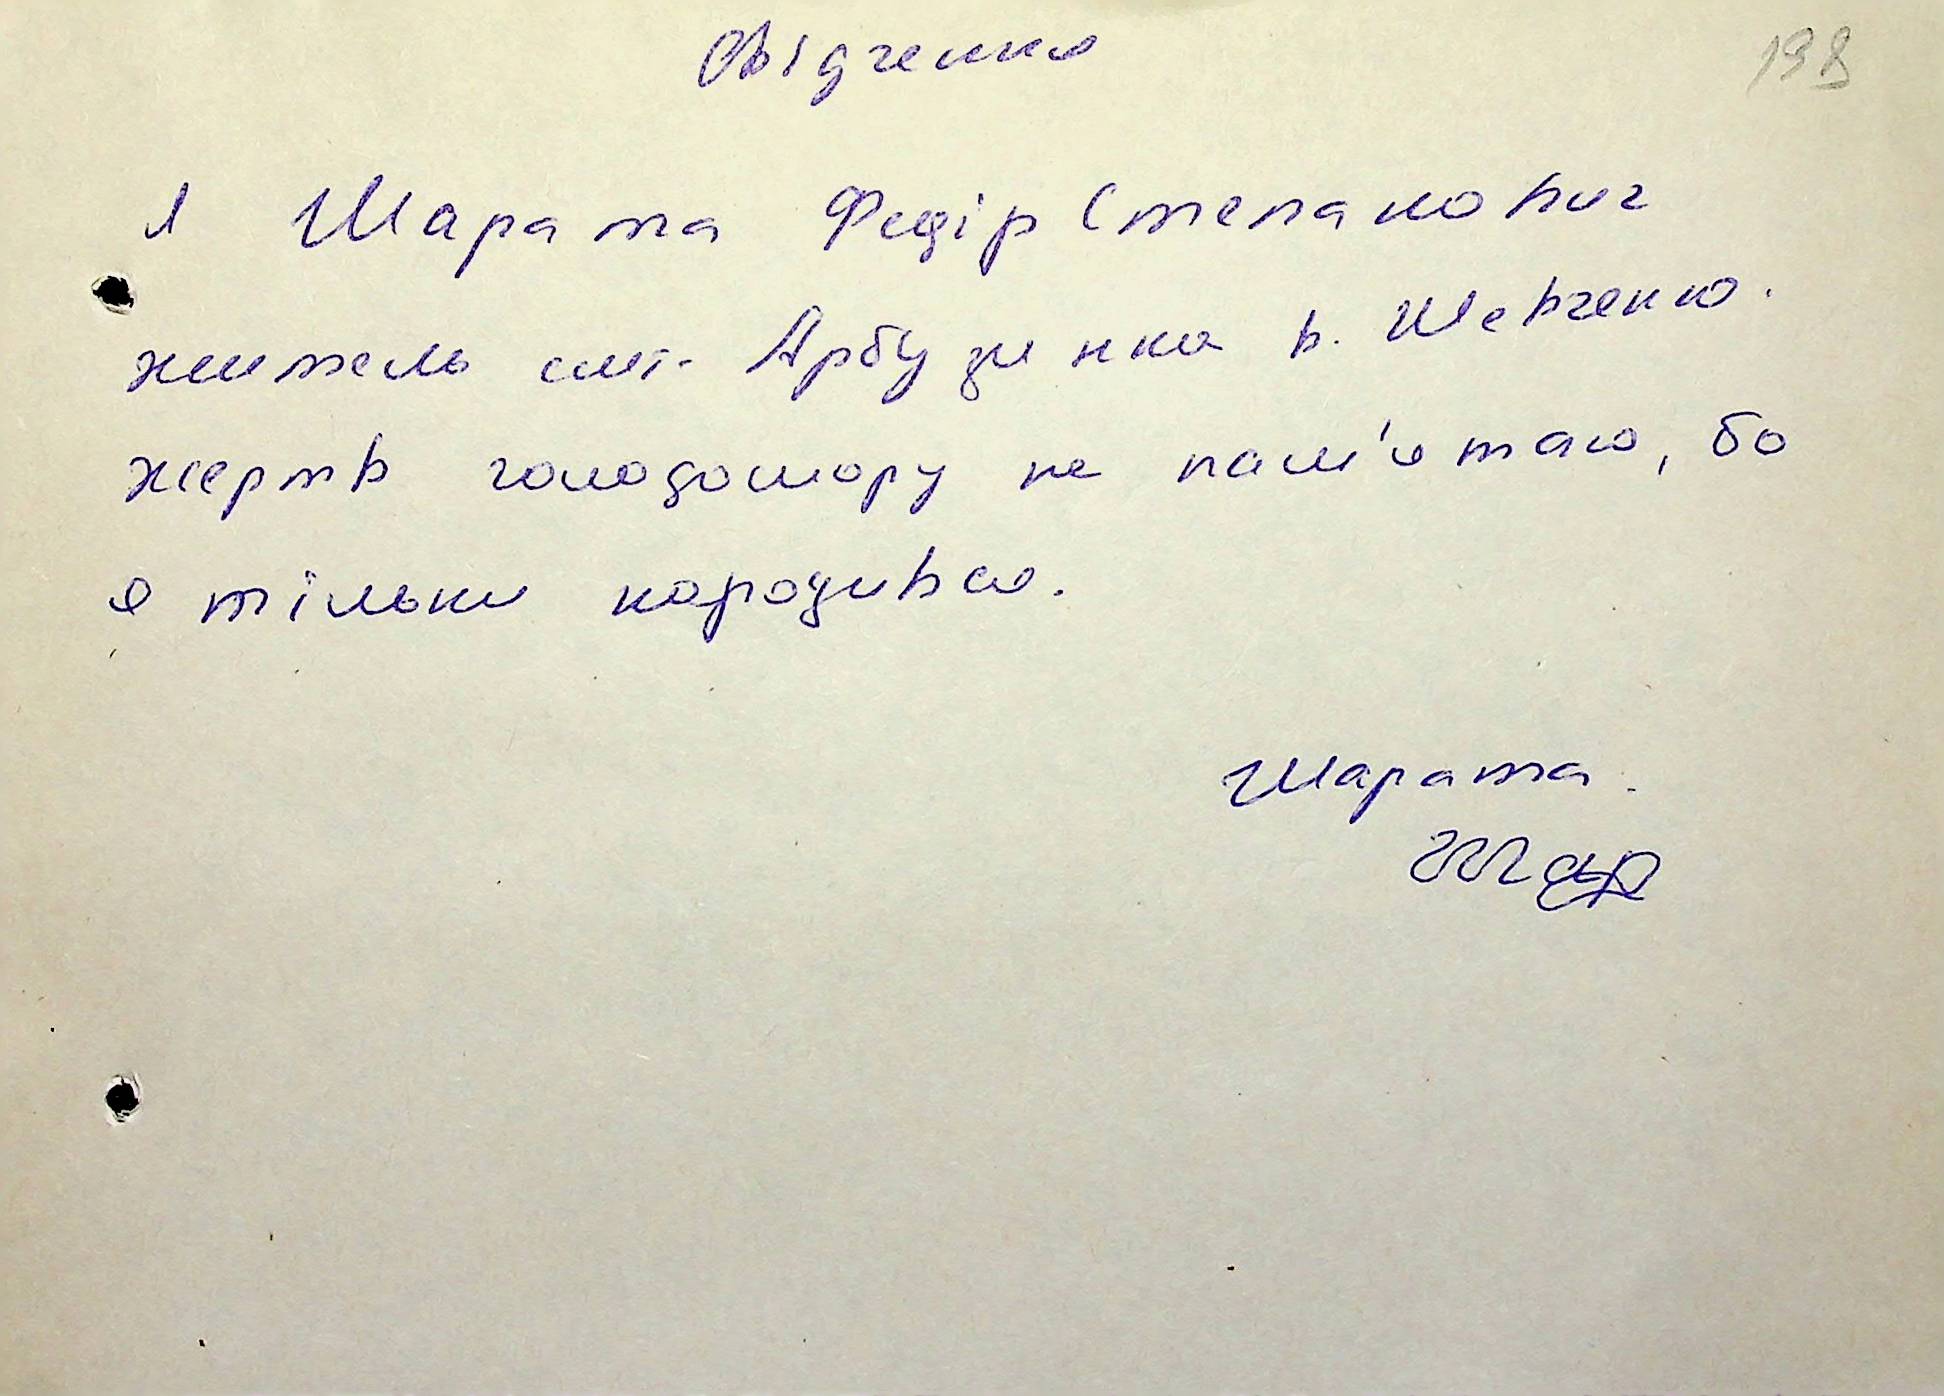 198
Свідчення
Я Шарата Федір Степанович
житель смт. Арбузинка в. Шевченко.
жертв голодомору не пам'ятаю, бо
я тільки народився.
Шарата.
Шар